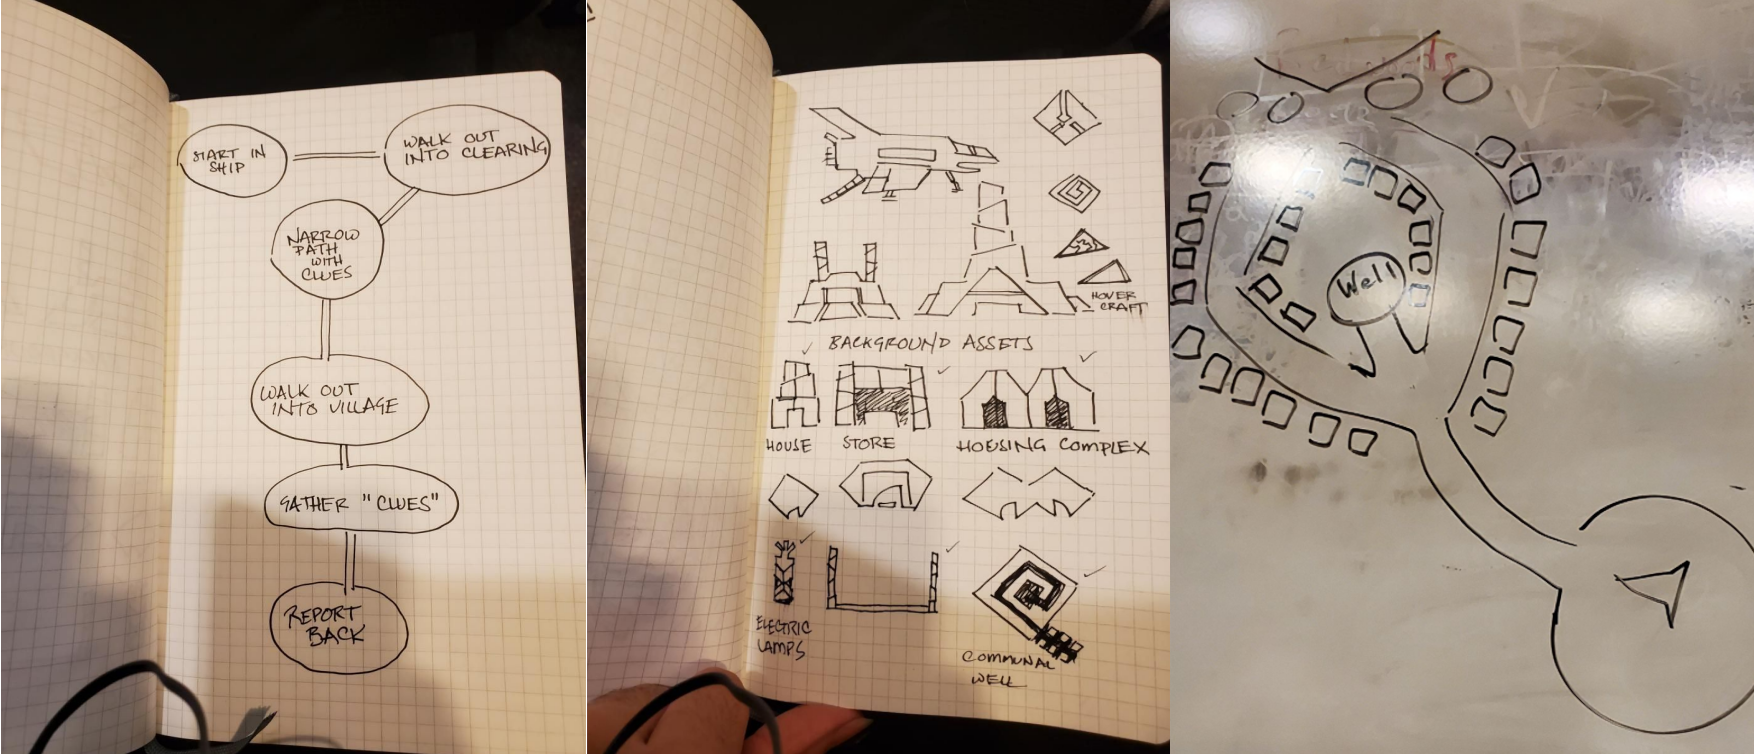 START IN
SHIP
WALK OUT
INTO CLEARING
NARROW
PATH
WITH
CLUES
WALK OUT
INTO VILLAGE
GATHER "CLUES"
REPORT
BACK
HOVER
CRAFT
BACKGROUND ASSETS
HOUSE
STORE
HOUSING COMPLEX
ELECTRIC
LAMPS
COMMUNAL
WELL
Well